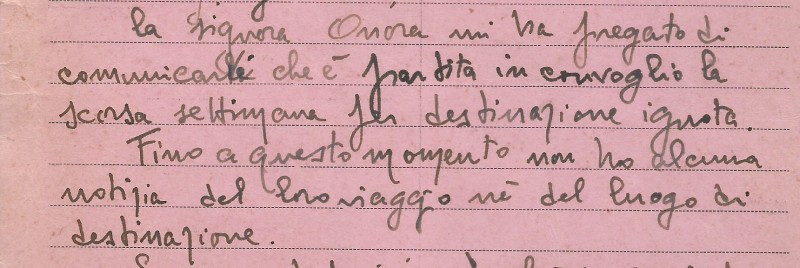 la signora Onora mi ha pregato di
comunicarLe che è partita in convoglio la
scorsa settimana per destinazione ignota.
Fino a questo momento non ho alcuna
notizia del loro viaggio nè del luogo di
destinazione.